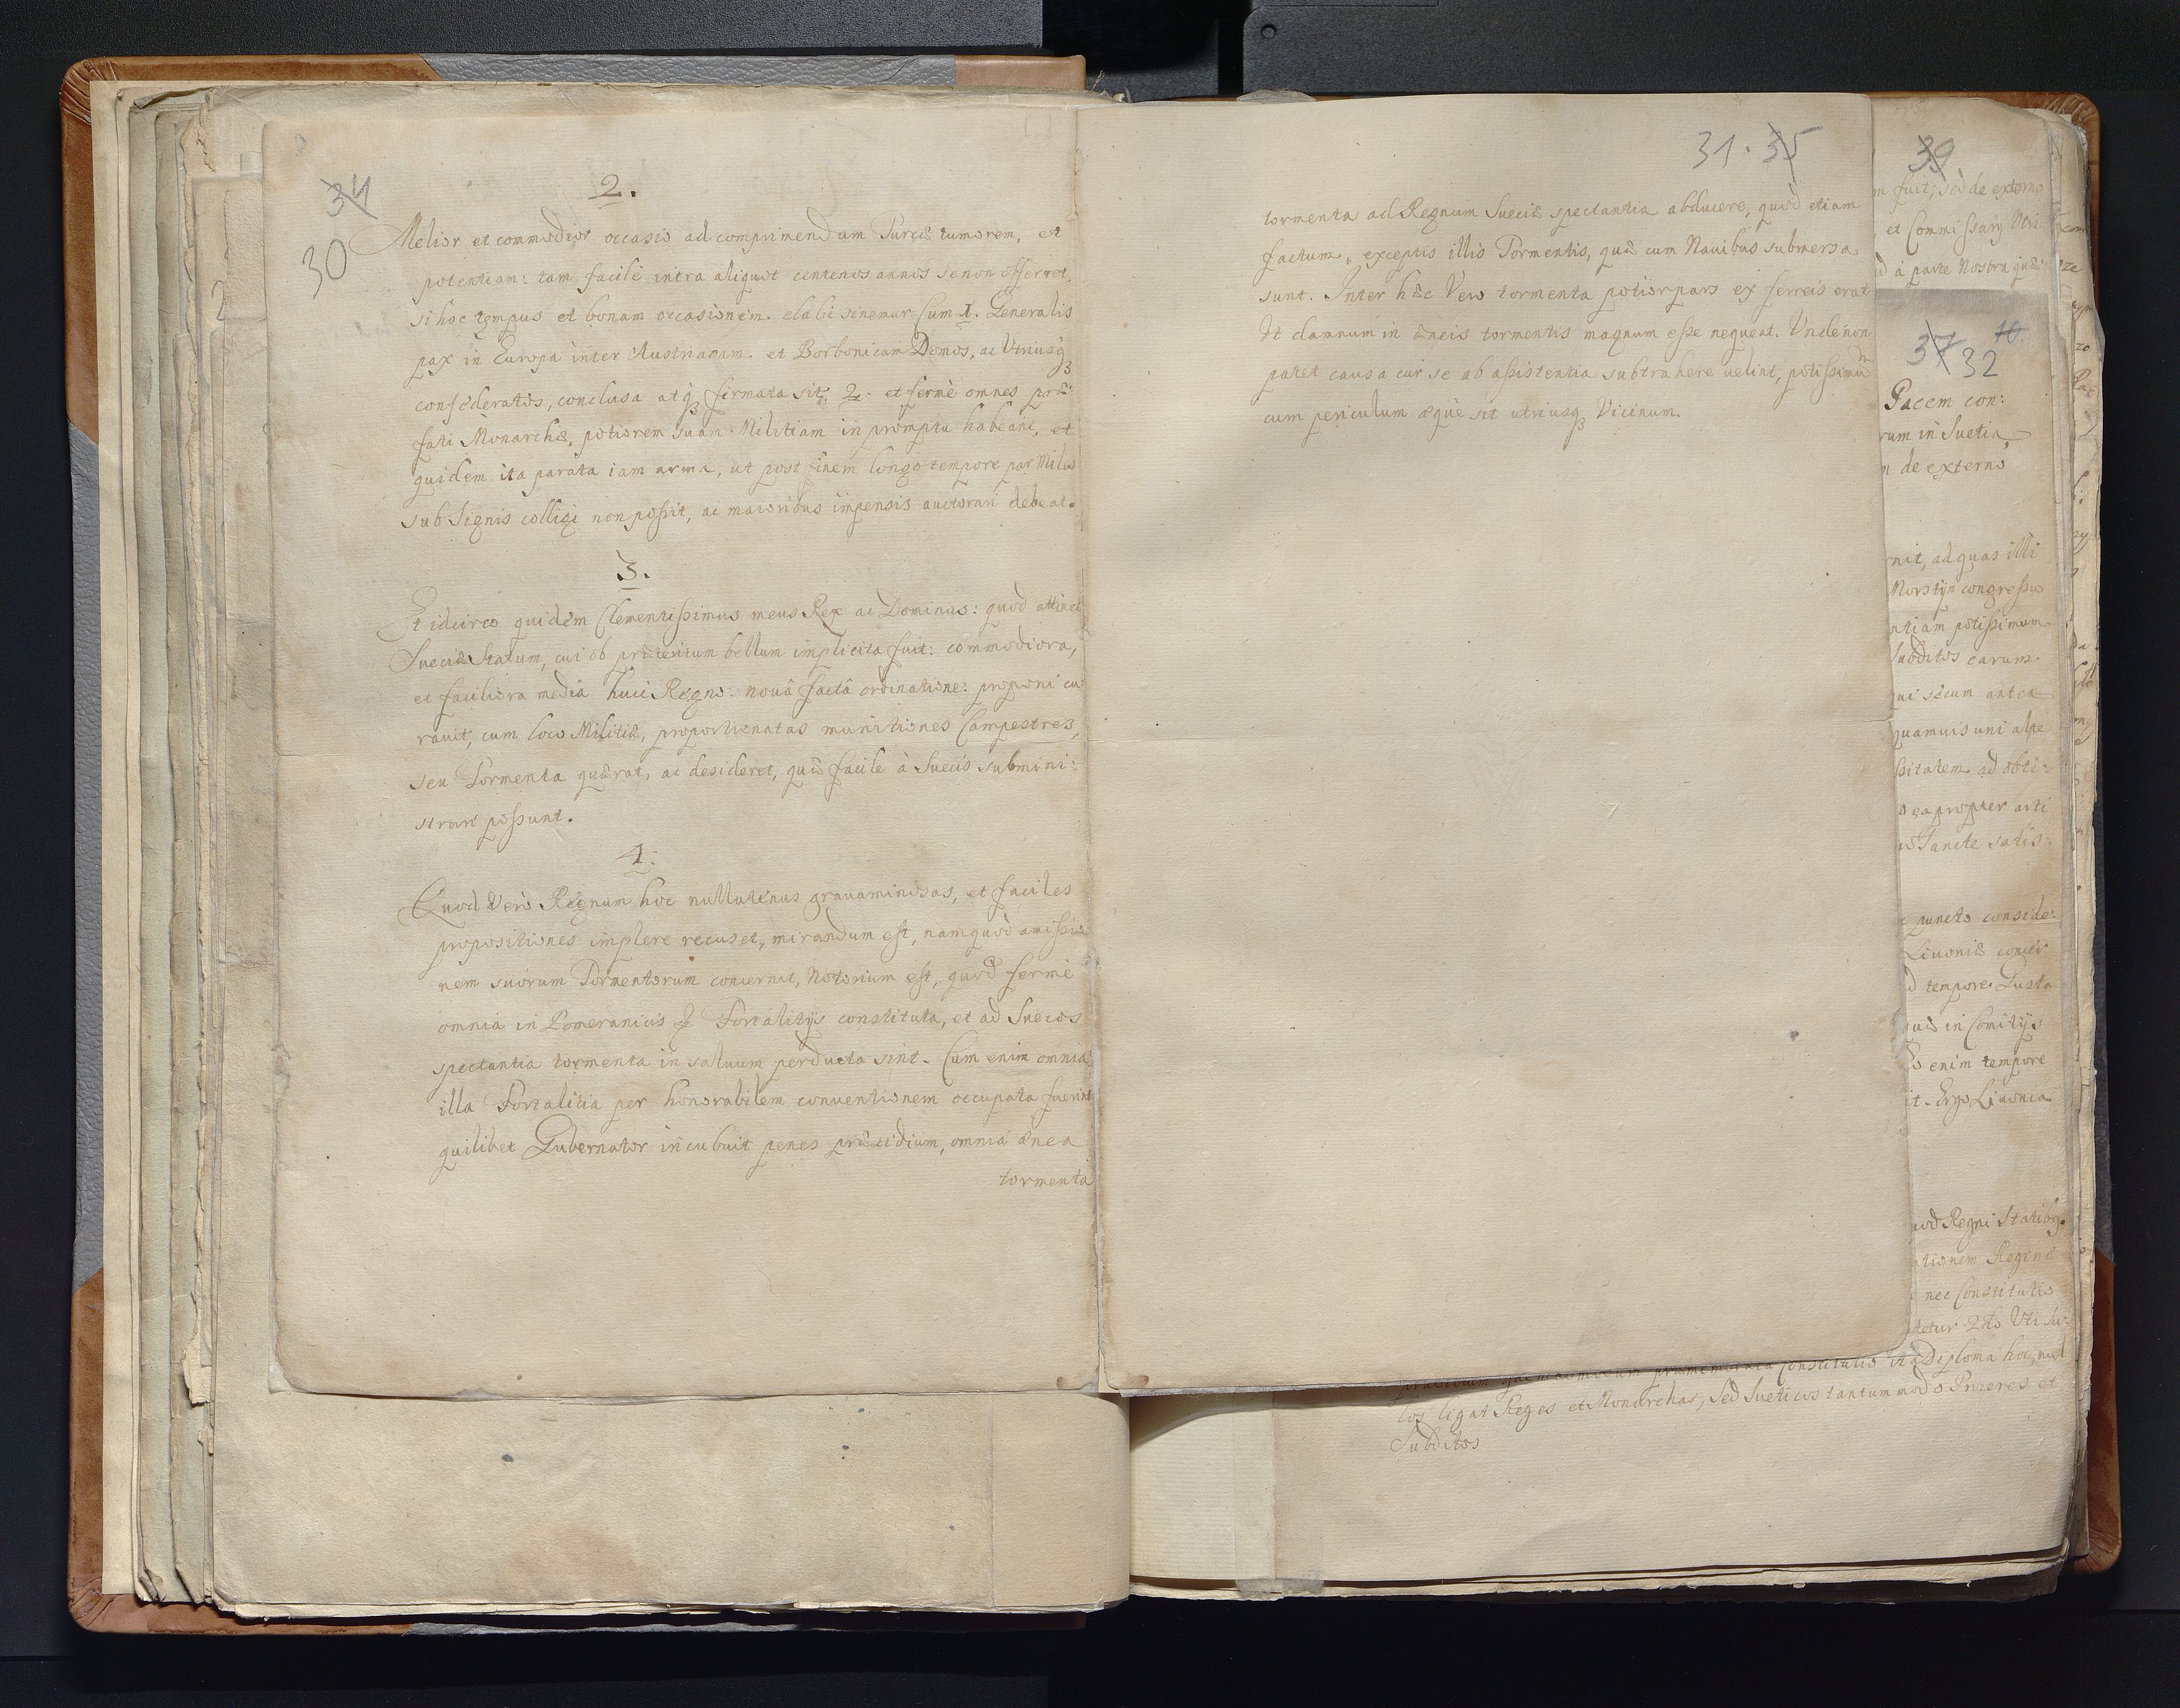 34
30
2.
Melior et commodior occasio ad comprimendum Turcæ tumorem, et
potentiam: tam facile intra aliquot centenos annos se non offerret,
si hoc tempus et bonam occasionem elabi sinemur Cum 1. Generalis
pax in Europa inter Austriacam et Borbonicam Domos, ac Utriusq3
confœderatos, conclusa atq3 firmata sit; 2. et fermè omnes præ:
fati Monarchæ, potiorem suam Militiam in promptu habeant, et
quidem ita parata iam arma, ut post finem longo tempore par Miles
sub Signis colligi non possit, ac maioribus impensis auctorari debeat.
3.
Et idcirco quidem Clementissimus meus Rex ac Dominus: quod attinet
Sueciæ Statum, cui ob præteritum bellum implicita fuit: commodiora,
et faciliora media huic Regno: nouâ factâ ordinatione: proponi cu
rauit, cum loco Militiæ, proportionatas munitiones Campestres,
seu Tormenta quærat, ac desideret, quæ facile à Suecis submini:
strari possunt.
4.
Quod Verò Regnum hoc nullatenus grauaminosas, et faciles
propositiones implere recuset, mirandum est, nam quòd amissio
nem suorum Tormentorum concernit, Notorium est, quod fermè
omnia in Pomeranicis Fortalitijs constituta, et ad Suecos
spectantia tormenta in saluum perducta sint. Cum enim omnia
illa Fortalitia per honorabilem conuentionem occupata fuerint
quilibet Gubernator incubuit penes præsidium, omnia ænea
tormenta
31. 35
tormenta ad Regnum Sueciæ spectantia abducere, quod etiam
factum, exceptis illis Tormentis, quæ cum Nauibus submersa
sunt. Inter hæc Vero tormenta potior pars ex ferreis erat
Ut damnum in æneis tormentis magnum esse nequeat. Vnde non
patet causa cur se ab assistentia subtrahere uelint, potissimum
cum periculum æquè sit utriusq3 Vicinum.
39
fuit; sed de externo
et Commissarij
à parte Nostra quæ
37 32
Pacem con:
rum in Suetia,
de externo
ad quas illi
Morstijn congressus
potissimum
Subditos earum
secum antea
quamuis uni
ad obti:
eapropter
Sancte satis:
puncto conside:
Liuoniæ
tempore Gusta
in Comitijs
enim tempore
Ergo Liuonia
Regni Statibq.
Reginæ
nec Constitutio
2do Vti
Constitutio Diploma hoc,
los ligat Reges et Monarchas, Sed Sueticos tantummodo Proceres et
Subditos